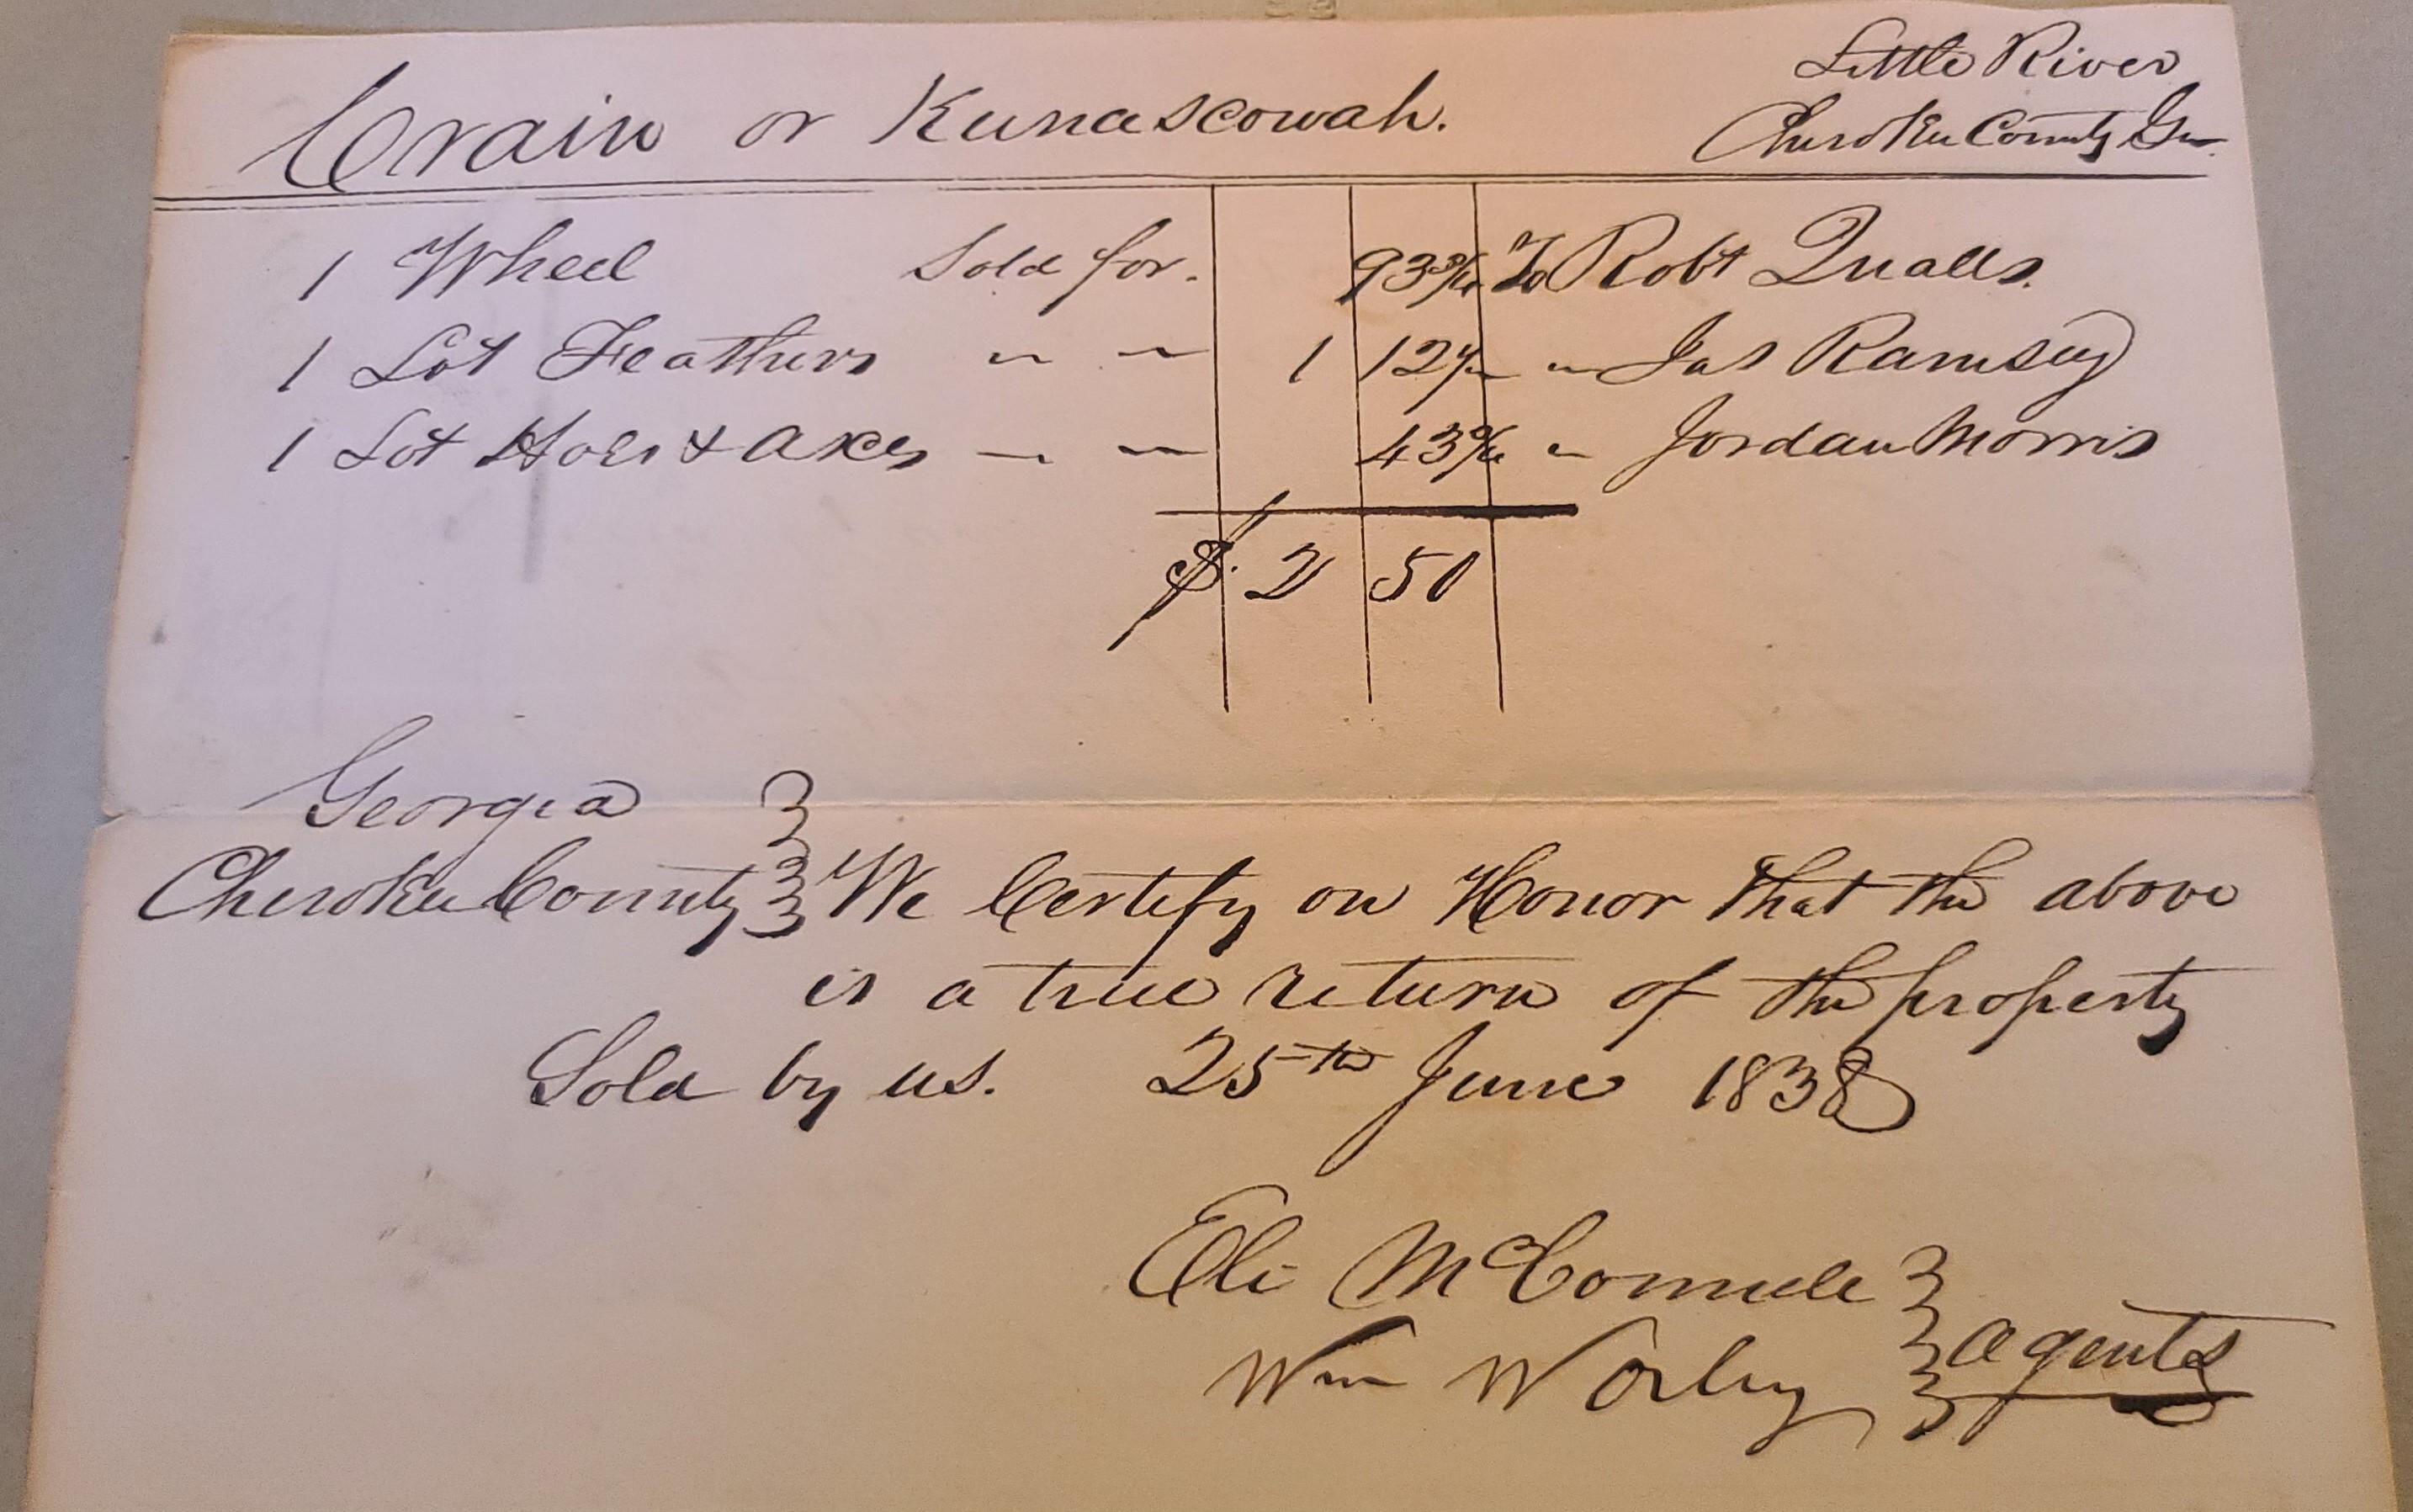 Little River
Crain or Kunascowah. Cherokee County Ga.
1 Wheel Sold for. 93 3/4 To Robt Qualls.
1 Lot Feathers " " 1 12 1/2 " Jas Ramsey
1 Lot Hoes & axes " " 43 3/4 " Jordan Morris
$. 2 50
Georgia
Cherokee County We Certify on Honor that the above
is a true return of the property
Sold by us. 25th June 1838
Eli McConnell
Wm Worley agents